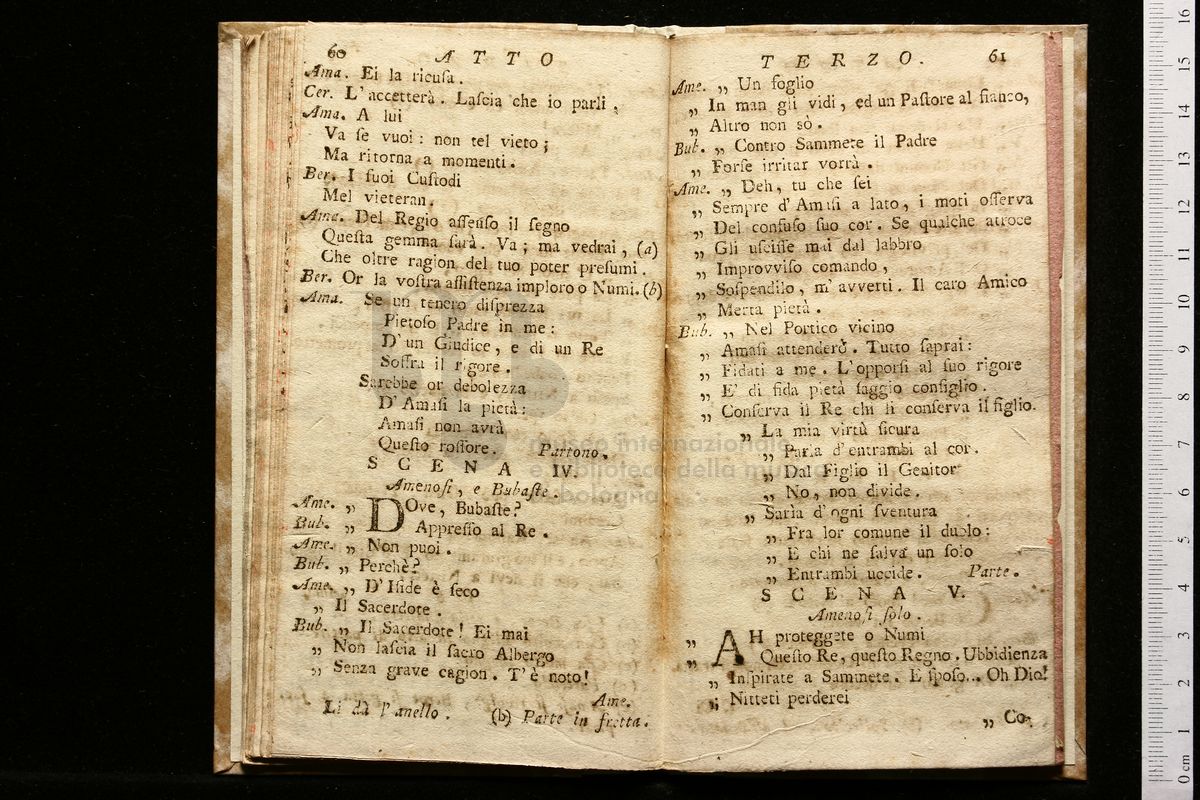 60 ATTO
Ama. Ei la ricuſa.
Cer. L'accetterà. Laſcia che io parli.
Ama. A lui
Va ſe vuoi: non tel vieto;
Ma ritorna a momenti.
Ber. I ſuoi Cuſtodi
Mel vieteran.
Ama. Del Regio aſſenſo il ſegno
Queſta gemma ſarà. Va; ma vedrai, (a)
Che oltre ragion del tuo poter preſumi.
Ber. Or la voſtra aſſiſtenza imploro o Numi. (b)
Ama. Se un tenero diſprezza
Pietoſo Padre in me:
D'un Giudice, e di un Re
Soffra il rigore.
Sarebbe or debolezza
D'Amaſi la pietà:
Amaſi non avrà
Queſto roſſore. Partono.
SCENA IV.
Amenoſi, e Bubaſte.
Ame. „ DOve, Bubaſte?
Bub. „ Appreſſo al Re.
Ame. „ Non puoi.
Bub. „ Perchè?
Ame. „ D'Iſide è ſeco
„ Il Sacerdote.
Bub. „ Il Sacerdote! Ei mai
„ Non laſcia il ſacro Albergo
„ Senza grave cagion. T'è noto!
Ame.
Li dà l'anello. (b) Parte in fretta.
TERZO. 61
Ame. „ Un foglio
„ In man gli vidi, ed un Paſtore al fianco,
„ Altro non sò.
Bub. „ Contro Sammete il Padre
„ Forſe irritar vorrà.
Ame. „ Deh, tu che ſei
„ Sempre d'Amaſi a lato, i moti oſſerva
„ Del confuſo ſuo cor. Se qualche atroce
„ Gli uſciſſe mai dal labbro
„ Improvviſo comando,
„ Soſpendilo, m'avverti. Il caro Amico
„ Merta pietà.
Bub. „ Nel Portico vicino
„ Amaſi attenderò. Tutto ſaprai:
„ Fidati a me. L'opporſi al ſuo rigore
„ E' di fida pietà ſaggio conſiglio.
„ Conſerva il Re chi li conſerva il figlio.
„ La mia virtù ſicura
„ Parla d'entrambi al cor.
„ Dal Figlio il Genitor
„ No, non divide.
„ Sarìa d'ogni ſventura
„ Fra lor comune il duolo:
„ E chi ne ſalva un ſolo
„ Entrambi uccide. Parte.
SCENA V.
Amenoſi ſolo.
„ AH proteggete o Numi
„ Queſto Re, queſto Regno. Ubbidienza
„ Inſpirate a Sammete. E ſpoſo... Oh Dio!
„ Nitteti perderei
„ Co-
museo internazionale
e biblioteca della musica
bologna